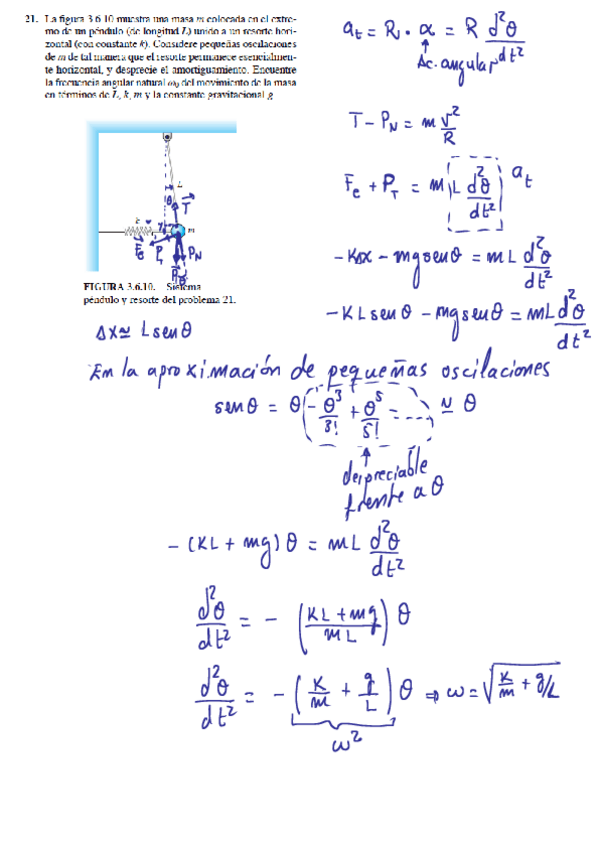 21. La figura 3.6.10 muestra una masa m colocada en el extre-
mo de un péndulo (de longitud L) unido a un resorte hori-
zontal (con constante k). Considere pequeñas oscilaciones
de m de tal manera que el resorte permanece esencialmen-
te horizontal, y desprecie el amortiguamiento. Encuentre
la frecuencia angular natural ω₀ del movimiento de la masa
en términos de L, k, m y la constante gravitacional g
a_t = R · α = R d²θ/dt²
Ac. angular
T - P_N = m v²/R
F_e + P_T = m (L d²θ/dt²) a_t
θ L
T
k m
F_e P_t P_N
P
FIGURA 3.6.10. Sistema
péndulo y resorte del problema 21.
-KΔx - mg senθ = mL d²θ/dt²
-KL senθ - mg senθ = mL d²θ/dt²
Δx ≃ L senθ
En la aproximación de pequeñas oscilaciones
senθ = θ (- θ³/3! + θ⁵/5! - ....) ≃ θ
despreciable
frente a θ
-(KL + mg) θ = mL d²θ/dt²
d²θ/dt² = - ((KL + mg)/mL) θ
d²θ/dt² = - (K/m + g/L) θ ⇒ ω = √(K/m + g/L)
ω²